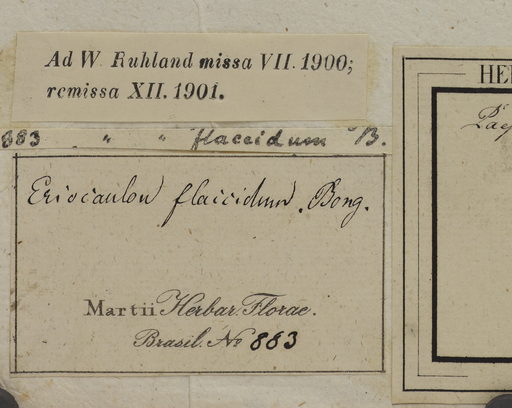 Ad W. Ruhland missa VII. 1900;
remissa XII. 1901.
883 " " flaccidum B.
Eriocaulon flaccidum. Bong.
Martii Herbar. Florae.
Brasil. No 883
HE